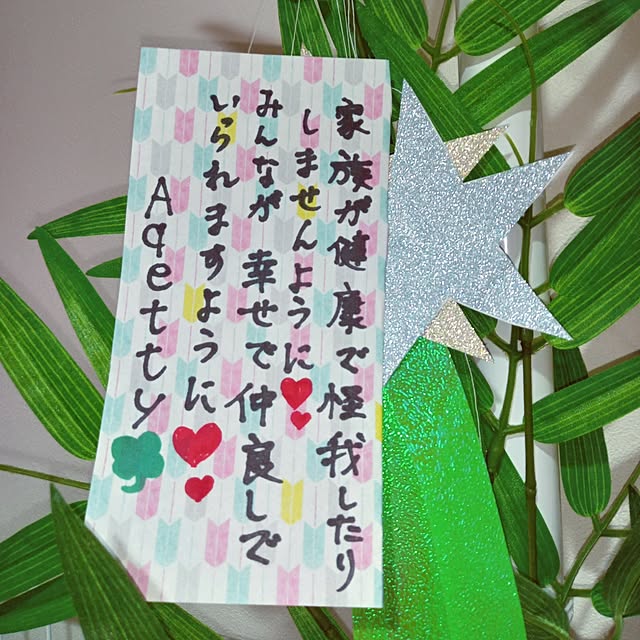 家族が健康で怪我したり
しませんように
みんなが幸せで仲良しで
いられますように
Agetty